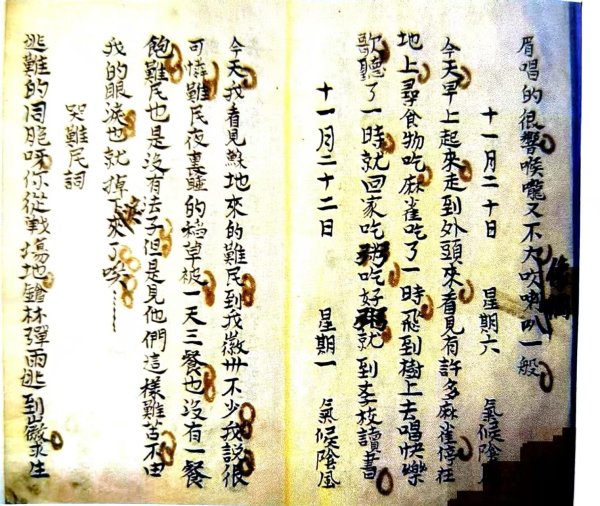 眉唱的很響喉嚨又不大吹喇叭一般
十一月二十日 星期六 氣候陰風
今天早上起來走到外頭來看見有許多麻雀停在
地上尋食物吃麻雀吃了一時飛到樹上去唱快樂
歌聽了一時就回家吃粥吃好粥就到李校讀書
十一月二十二日 星期一 氣候陰風
今天我看見蘇地來的難民到我徽州不少我說很
可憐難民夜裏睡的稻草被一天三餐也沒有一餐
飽難民也是沒有法子但是見他們這樣難苦不由
我的眼淚也就掉下來了唉……
哭難民詞
逃難的同胞呀你從戰場地鎗林彈雨逃到徽求生